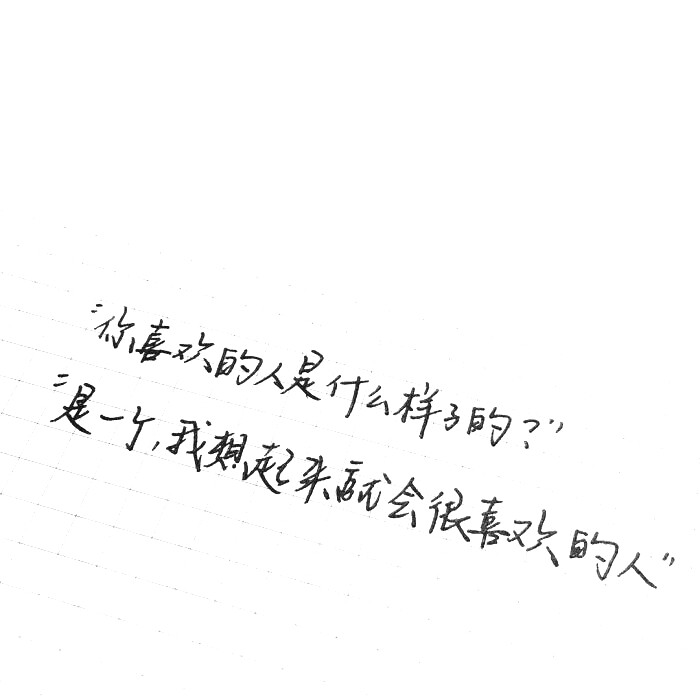 “你喜欢的人是什么样子的？”
“是一个，我想起来就会很喜欢的人”